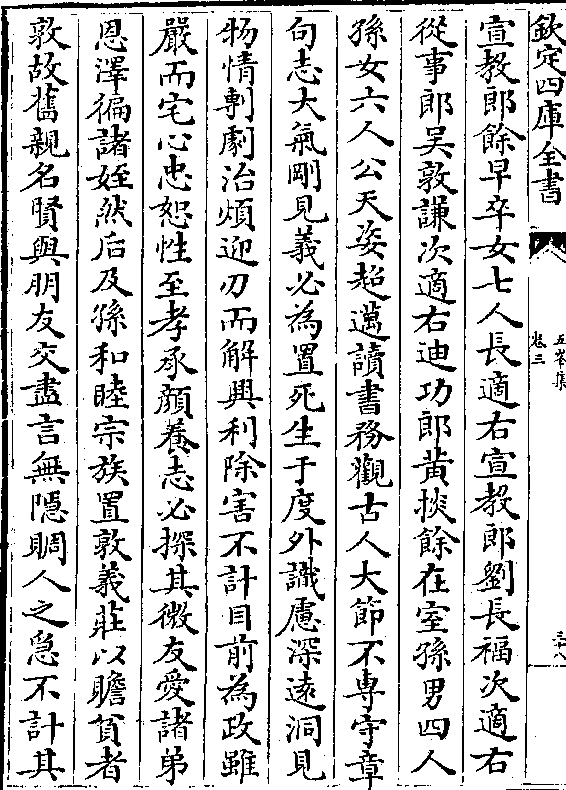 欽定四庫全書
五峯集
卷三
三十八
宣教郎餘早卒女七人長適右宣教郎劉長福次適右
從事郎吳敦謙次適右迪功郎黃掞餘在室孫男四人
孫女六人公天姿超邁讀書務觀古人大節不專守章
句志大氣剛見義必為置死生于度外識慮深遠洞見
物情剸劇治煩迎刃而解興利除害不計目前為政雖
嚴而宅心忠恕性至孝承顔養志必探其微友愛諸弟
恩澤徧諸姪然后及孫和睦宗族置敦義莊以贍貧者
敦故舊親名賢與朋友交盡言無隱賙人之急不計其